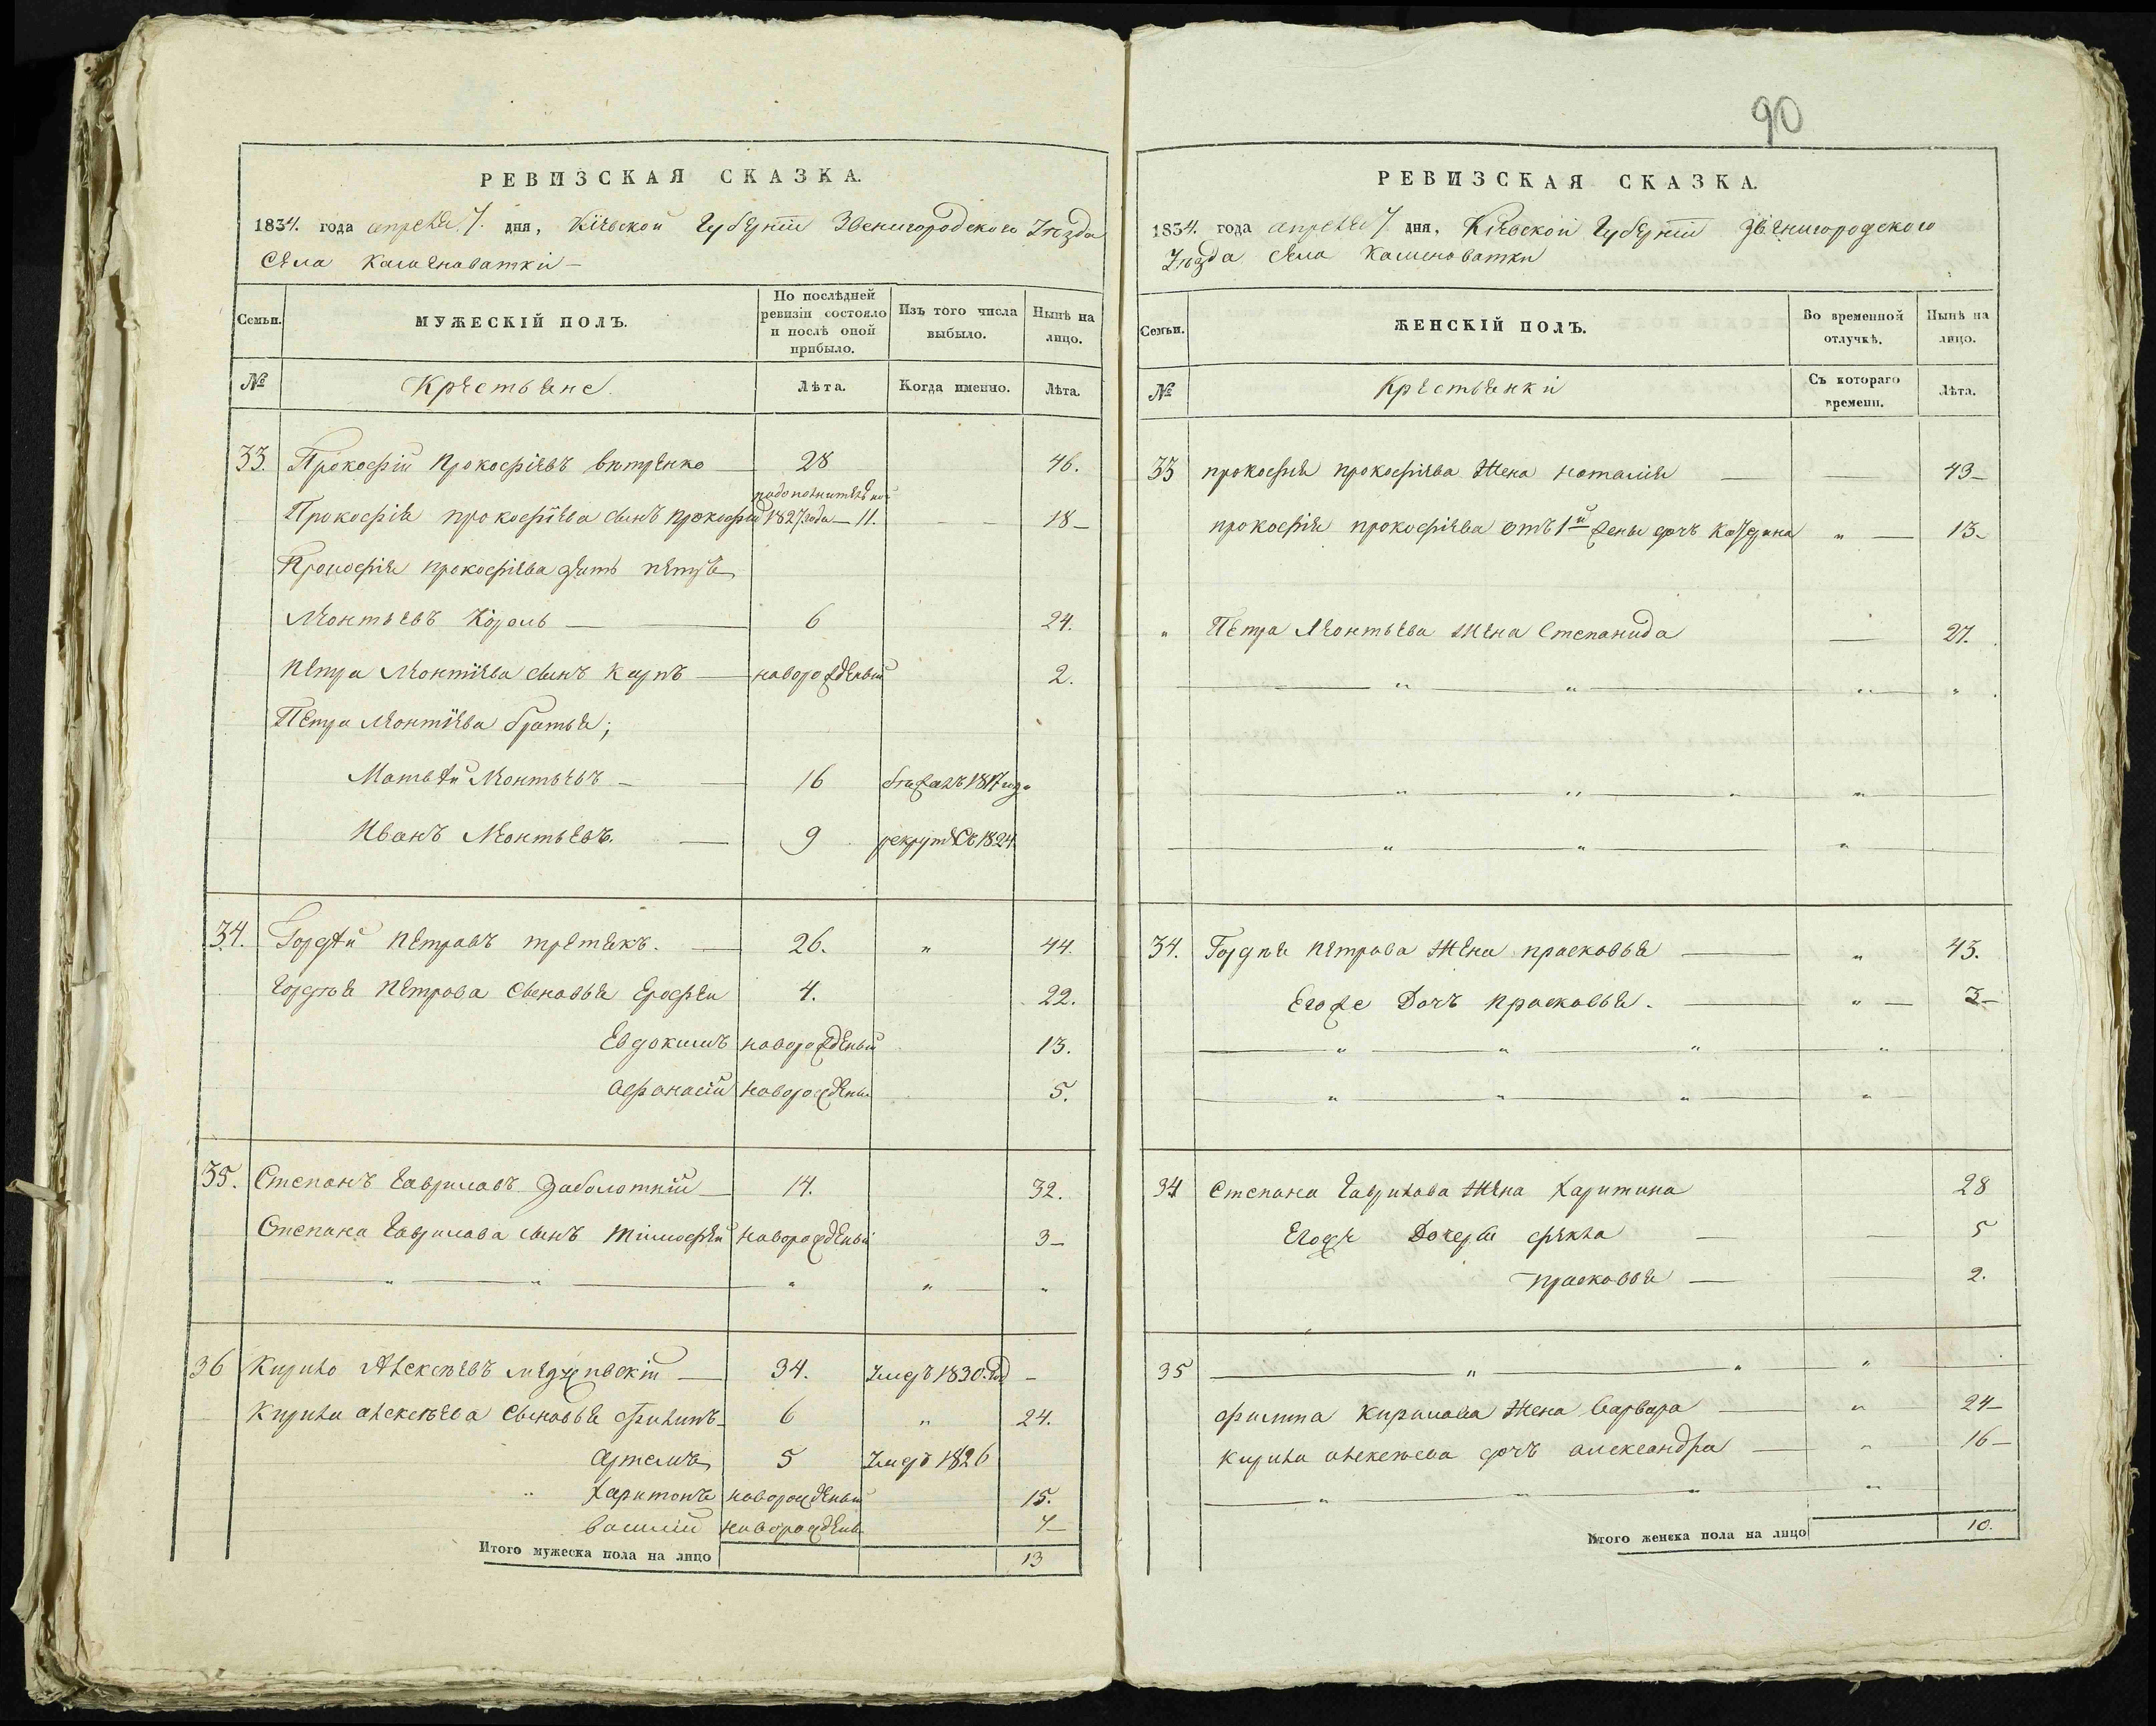 90
РЕВИЗСКАЯ СКАЗКА.
1834. года апреля 7. дня, Кіевской Губерніи Звенигородского Уезда
Села Каменоватки
Семьи. МУЖЕСКІЙ ПОЛЪ. По послѣдней ревизіи состояло и послѣ оной прибыло. Изъ того числа выбыло. Нынѣ на лицо.
№ Крестьяне. Лѣта. Когда именно. Лѣта.
33. Прокофій Прокофіевъ 28 46.
Прокофія прокофіева сынъ прокофій 1827 года — 11. 18
Прокофія прокофіева зять петръ
Леонтьевъ Король 6 24.
Петра Леонтіева сынъ Карпъ новорожденый 2.
Петра Леонтіева братья;
Матвѣй Леонтьевъ 16 1817
Иванъ Леонтьевъ. 9 рекрутѣ съ 1824
34. Гордѣй Петровъ третякъ. 26. " 44.
Гордѣя Петрова сыновья Ерофей 4. 22.
Евдокимъ новорожденый 13.
афонасій новорожденый 5.
35. Степанъ Гавриловъ Заболотній 14. 32.
Степана Гаврилова сынъ тимофей новорожденый 3
" " " " "
36 Кирило Алексѣевъ 34. умеръ 1830. год
Кирила алексѣева сыновья филипъ 6 " 24.
артемъ 5 умеръ 1826
харитонъ новорожденый 15.
василий новорожден 7
Итого мужеска пола на лицо 13
РЕВИЗСКАЯ СКАЗКА.
1834. года апреля 7 дня, Кіевской Губерніи Звенигородского
Уезда Села Каменоватки
Семьи. ЖЕНСКІЙ ПОЛЪ. Во временной отлучкѣ. Нынѣ на лицо.
№ Крестьянки Съ котораго времени. Лѣта.
33 прокофія прокофіева Жена наталия 43
прокофія прокофіева отъ 1й жены дочъ " 13
" Петра Леонтьева жена Степанида 27.
" " " "
" " "
" " "
34. Гордѣя петрова Жена прасковья " 43.
Егоже Дочъ прасковья. " 3
" " " "
" " " "
34 Степана Гаврилова Жена Харитина 28
Егоже Дочери фекла 5
прасковья 2.
35 " " "
филипа Кирилова Жена Варвара " 24
Кирила алексѣева дочъ александра " 16
" " " "
Итого женска пола на лицо 10.